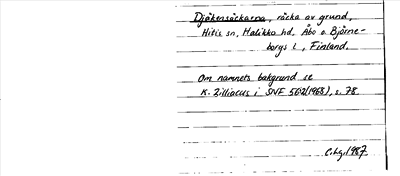 Djäkensäckarna, räcka av grund,
Hitis sn, Halikko hd, Åbo o. Björne-
borgs l, Finland.
Om namnets bakgrund se
K. Zilliacus i SNF 56(2(1968), s. 78.
C.hg. 1987.